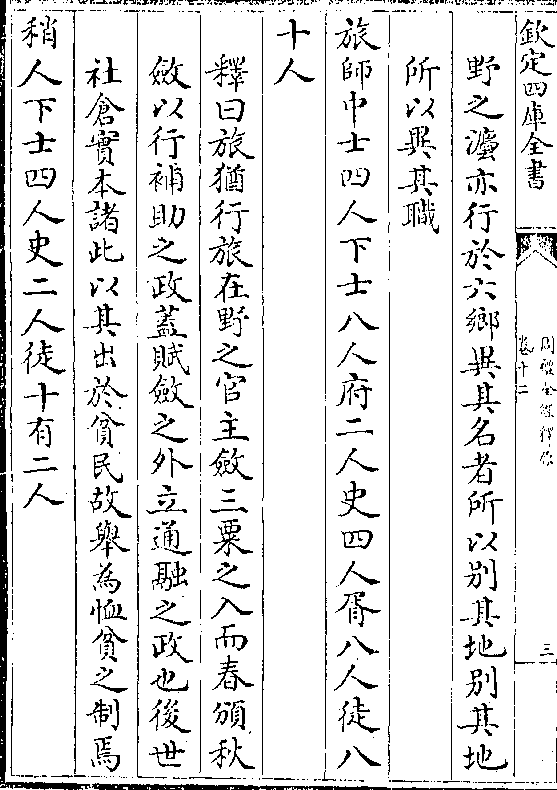 欽定四庫全書
周禮全經釋原
卷十二
三
野之灋亦行於六鄉異其名者所以別其地別其地
所以異其職
旅師中士四人下士八人府二人史四人胥八人徒八
十人
釋曰旅猶行旅在野之官主斂三粟之入而春頒秋
斂以行補助之政蓋賦斂之外立通融之政也後世
社倉實本諸此以其出於貧民故舉為恤貧之制焉
稍人下士四人史二人徒十有二人